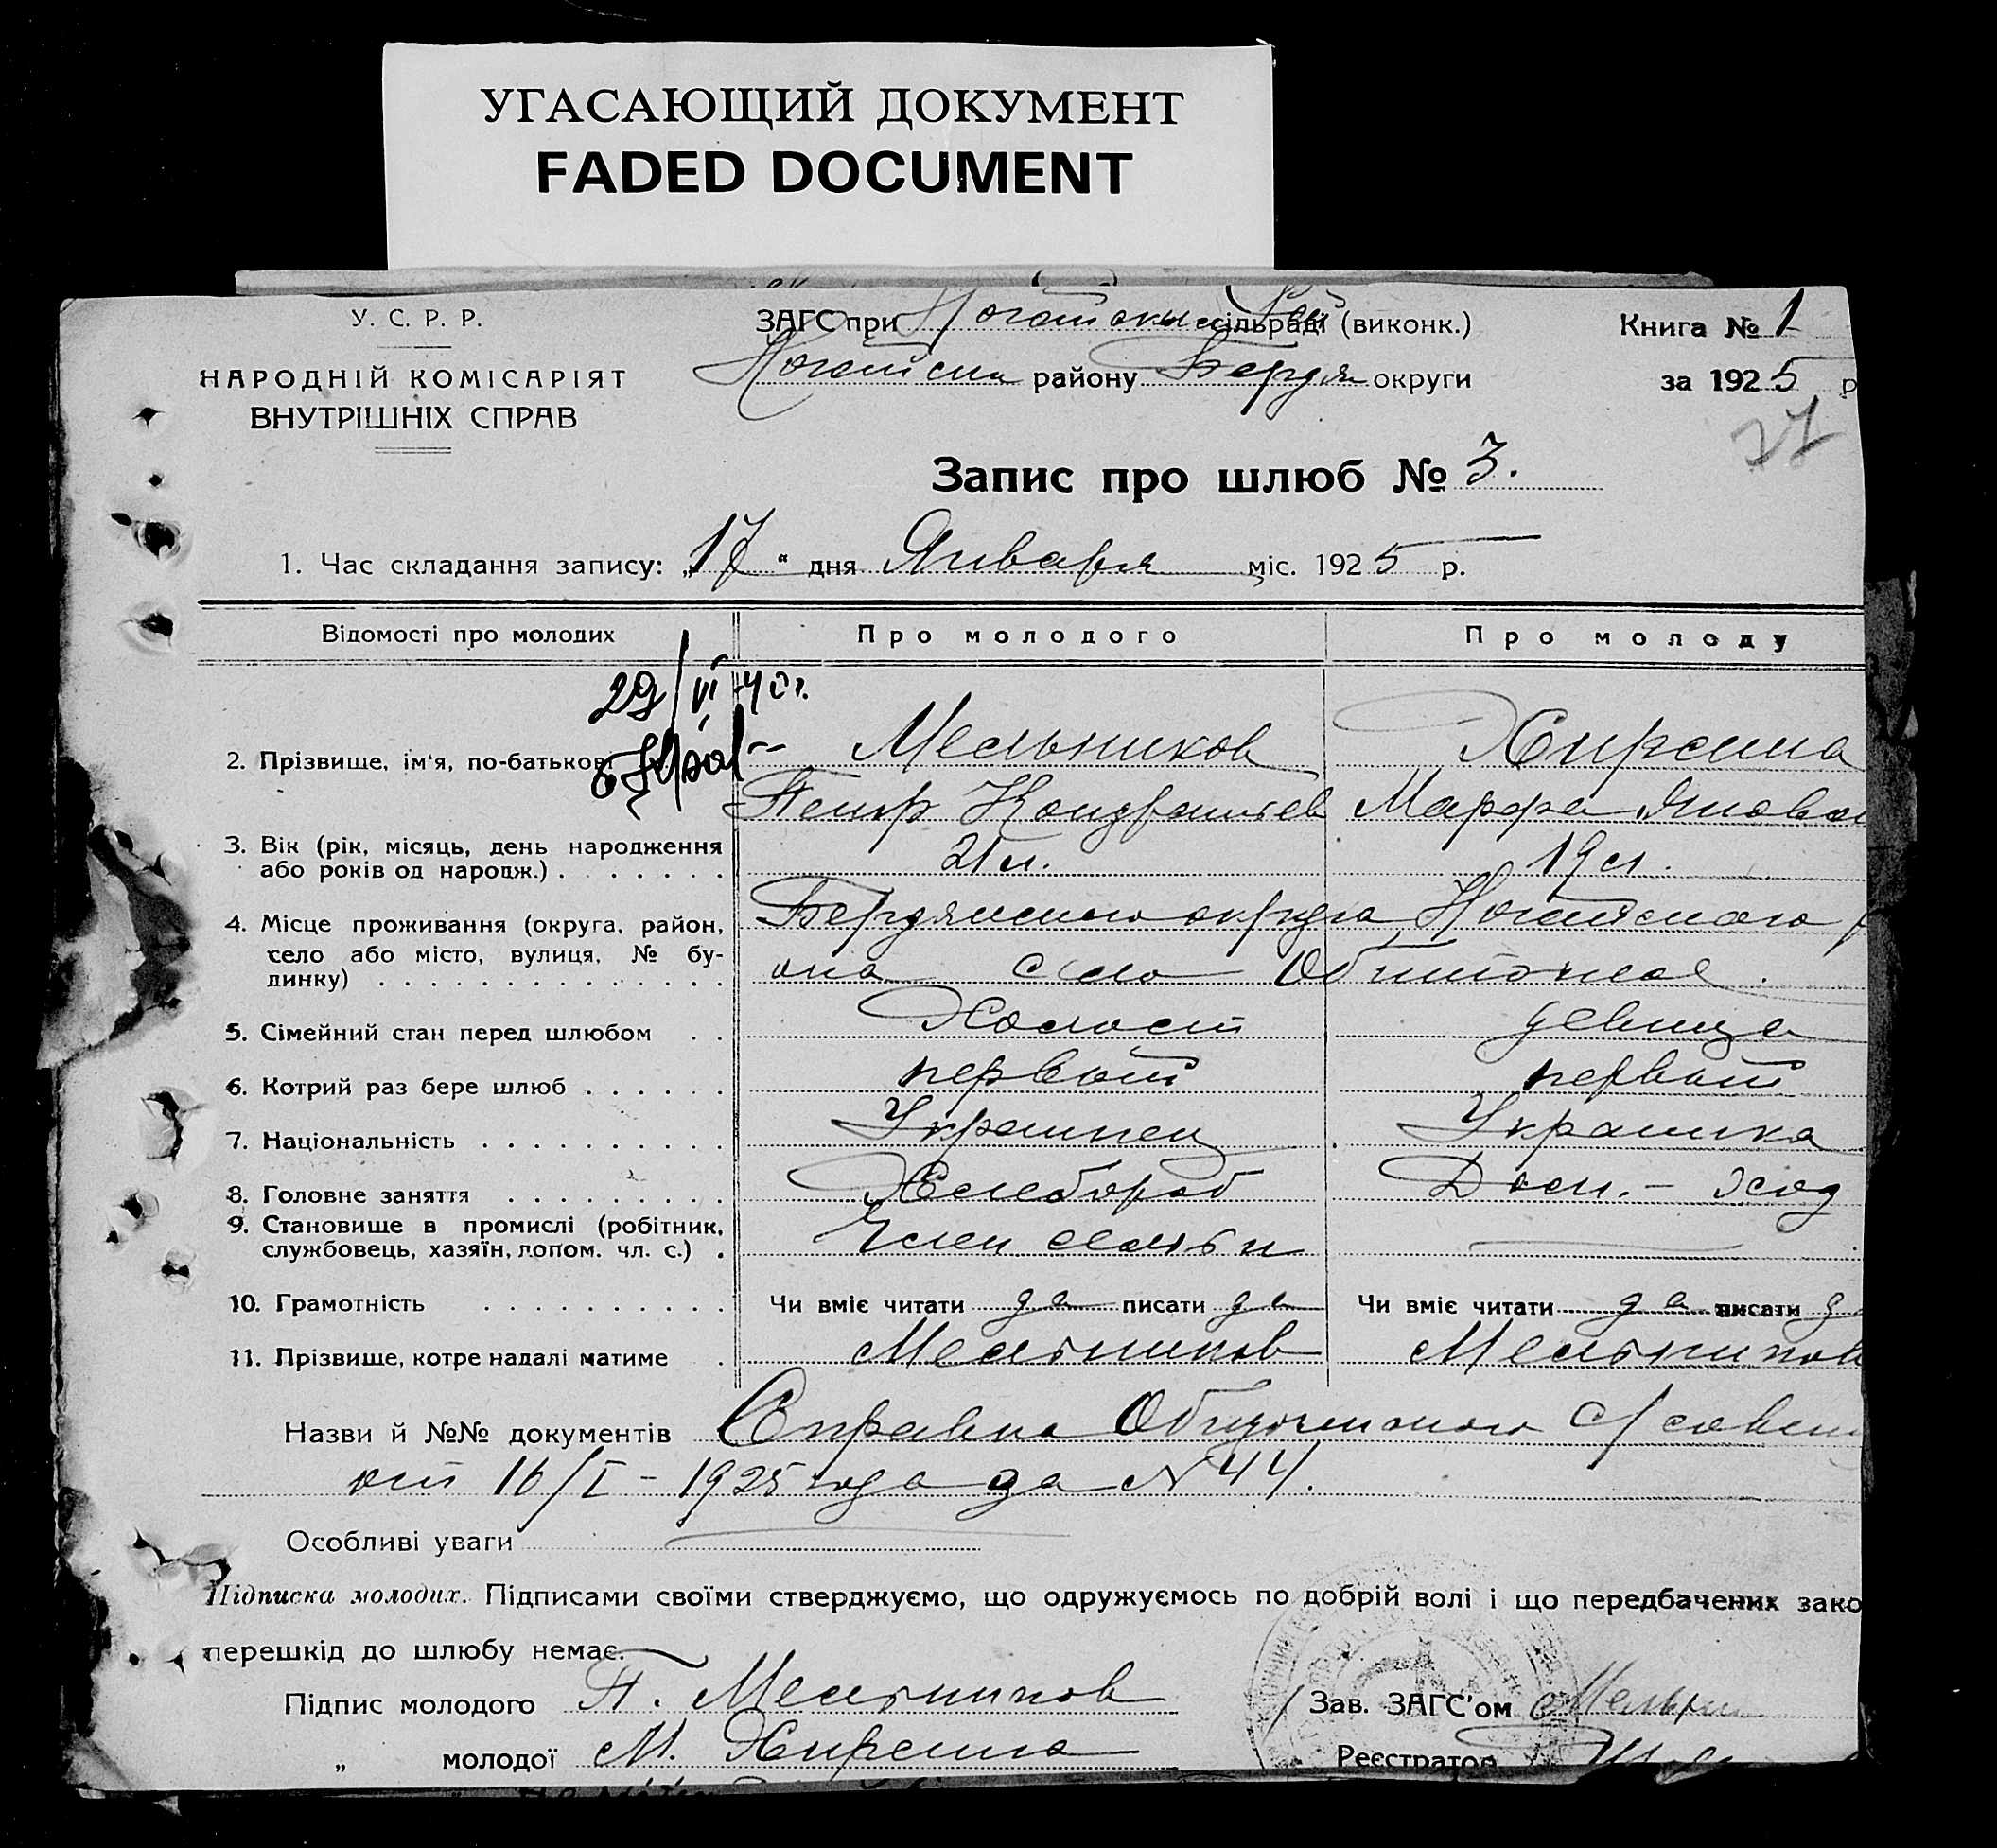 УГАСАЮЩИЙ ДОКУМЕНТ
FADED DOCUMENT
У. С. Р. Р.
НАРОДНІЙ КОМІСАРІЯТ
ВНУТРІШНІХ СПРАВ
ЗАГС при сільраді (виконк.)
району Бердян округи
Книга № 1
за 1925 р
27
Запис про шлюб № 3.
1. Час складання запису: „17“ дня Января міс. 1925 р.
Відомості про молодих Про молодого Про молоду
29/VI-40г.
2. Прізвище, ім'я, по-батькові Мельников
Петр Кондратьев Марфа Яковл
3. Вік (рік, місяць, день народження
або років од народж.) 21 л. 19 л.
4. Місце проживання (округа, район,
село або місто, вулиця, № бу-
динку)
Бердянского округа Ногайского р
она село Обиточная.
5. Сімейний стан перед шлюбом Холост девица
6. Котрий раз бере шлюб первый первый
7. Національність Украинец Украинка
8. Головне заняття Хлебороб Дом. - хоз
9. Становище в промислі (робітник,
службовець, хазяїн, допом. чл. с.) Член семьи
10. Грамотність Чи вміє читати да писати да Чи вміє читати да писати д
11. Прізвище, котре надалі матиме Мельников Мельников
Назви й №№ документів Справка с/совет
от 16/I - 1925 года за N 44.
Особливі уваги
Підписка молодих. Підписами своїми стверджуємо, що одружуємось по добрій волі і що передбачених зако
перешкід до шлюбу немає.
Підпис молодого П. Мельников
„ молодої М.
Зав. ЗАГС'ом
Реєстратор